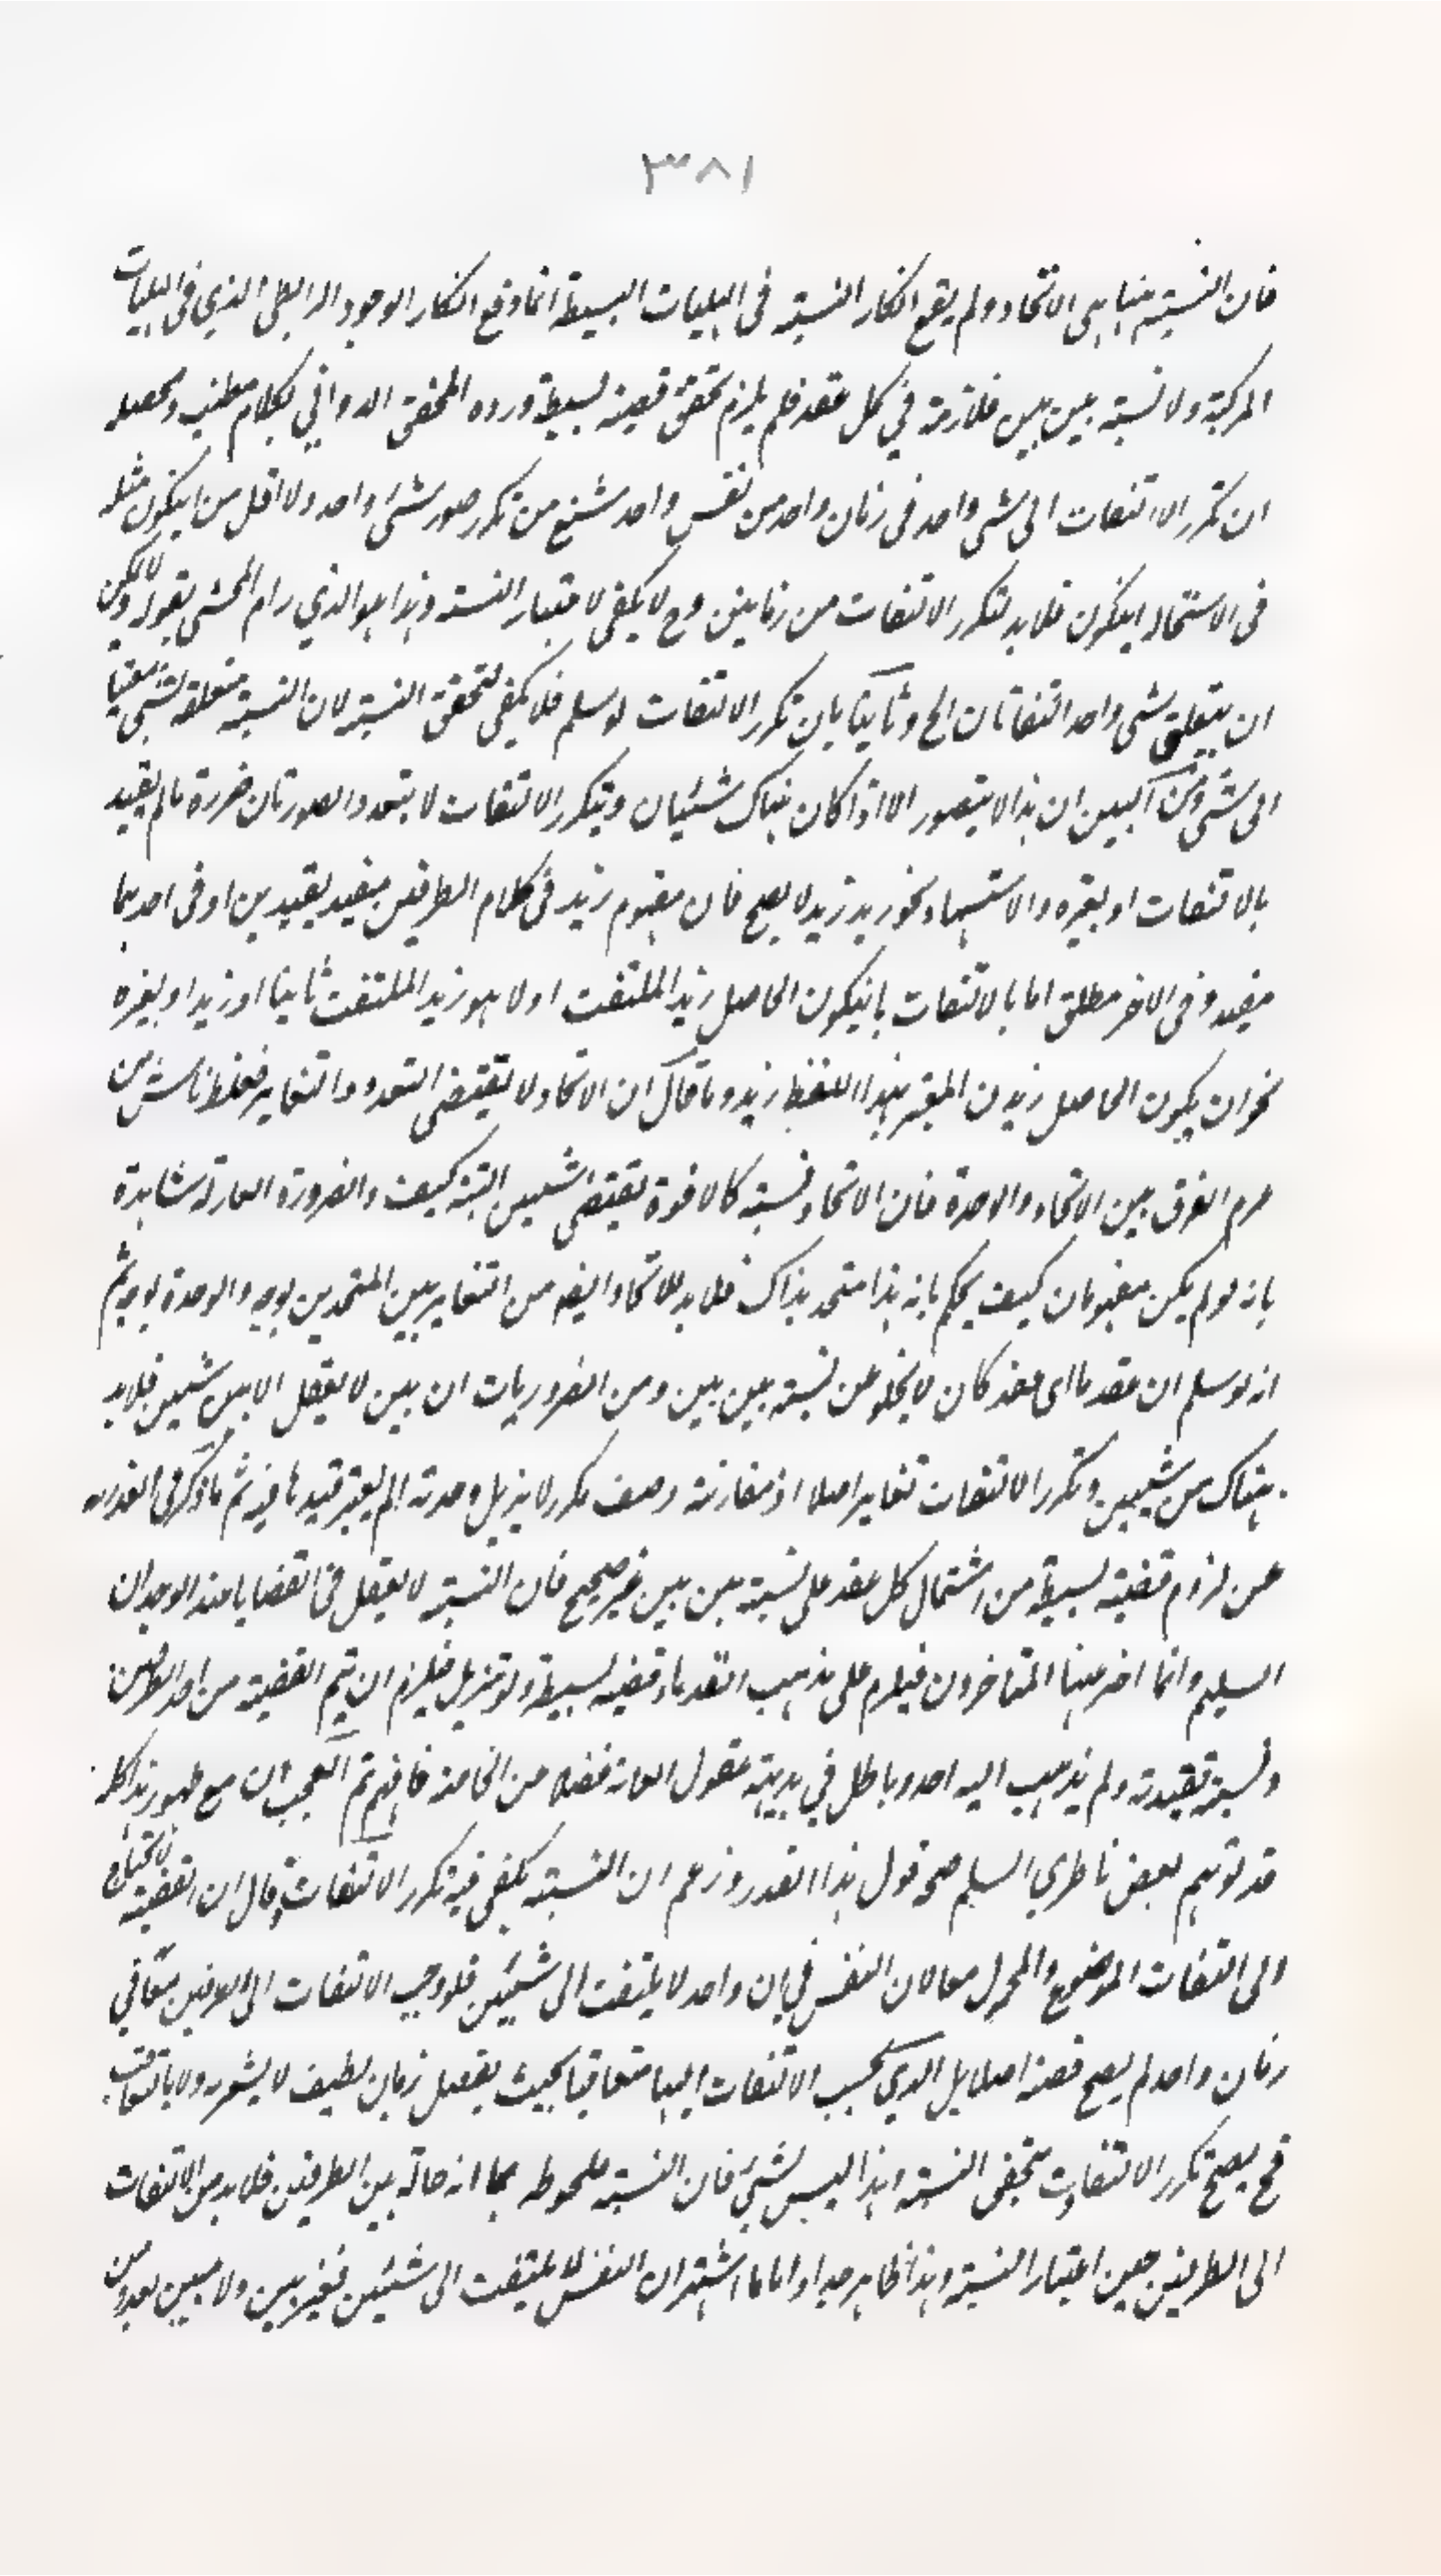 ٣٨١
فان النسبة هنا هى الاتحاد ولم يقع انكار النسبة فى الهليات البسيطة انما وقع انكار الوجود الرابطى الذي فى الهليات
المركبة ولا نسبة بين بين فلازمة في كل عقد فلم يلزم تحقق قضية بسيطة ورده المحقق الدواني بكلام مطنب ومحصله
ان تكرر الالتفات الى شى واحد فى زمان واحد من نفس واحد شنع من تكرر صور شئ واحد ولا اقل من ايكون مثله
فى الاستحالة ايكون فلابد لتكرر الالتفات من زمانين وح لا يكفى لاعتبار النسبة وهذا هو الذي رام المحشى بقوله ولا يمكن
ان يتعلق بشى واحد التفاتان الخ وثانيا بان تكرر الالتفات لو سلم فلا يكفى لتحقق النسبة لان النسبة متعلقة بشى مقيسا
الى شى ومن البين ان هذا لا يتصور الا اذا كان هناك شيئان وبتكرر الالتفات لا يتعدد الصورتان ضررة مالم يقيد
بالالتفات او بغيره والاستشهاد بنحو زيد زيد لا يصح فان مفهوم زيد فى كلام الطرفين مقيد بقيدين او فى احدهما
مقيد وفى الاخر مطلق اما بالالتفات بانيكون الحاصل زيد الملتفت اولا هو زيد الملتفت ثانيا او زيد او بغيره
نحو ان يكون الحاصل زيدن المعبر بهذا اللفظ زيد وما قال ان الاتحاد لا يقتضى التعدد والتغاير فغلط ناش من
عدم الفرق بين الاتحاد والوحدة فان الاتحاد نسبة كالاخوة تقتضى شيئين البتة كيف والضرورة العادلة شاهدة
بانه لو لم يكن مفهومان كيف يحكم بانه هذا متحد بذاك فلابد للاتحاد ايضا من التغاير بين المتحدين بوجه والوحدة بوجه ثم
انه لو سلم ان عقد ما اى عقد كان لا يخلو عن نسبة بين بين ومن الضروريات ان بين لا يعقل الا بين شيئين فلابد
هناك من شيئين وتكرر الالتفات تغاير اصلا اذ مقارنة وصف مكرر لا يزيل وحدته مالم يعتبر قيدا ما فيه ثم ما ذكر فى العذر
عن لزوم قضية بسيطة من اشتمال كل عقد على نسبة بين بين غير صحيح فان النسبة لا يعقل فى القضايا عند الوجدان
السليم وانما اخترعها المتاخرون فيلزم على مذهب القدماء قضية بسيطة ولو تنزيل فيلزم ان يتم القضية من احد الطرفين
ونسبة تقييدية ولم يذهب اليه احد وباطل في بديهة عقول العامة فضلا من الخاصة فافهم ثم العجب ان مع ظهور هذا كله
قد توهم بعض ناظري السلم صحة قول هذا القدر وزعم ان النسبة يكفى فيه تكرر الالتفات وقال ان القضية لا تحتاج
الى التفات الموضوع والمحمول معا لان النفس في ان واحد لا يلتفت الى شيئين فلو وجب الالتفات الى الطرفين معا في
زمان واحد لم يصح قضية اصلا بل الذي يجب الالتفات اليها متعاقبا بحيث يفصل زمان لطيف لا يشعر به ولا بالتعاقب
فح يصح تكرر الالتفات بتحقق النسبة وهذا ليس بشئ فان النسبة ملحوظة بما انه حالة بين الطرفين فلابد من الالتفات
الى الطرفين حين اعتبار النسبة وهذا ظاهر جدا واما ما اشتهر ان النفس لا يلتفت الى شيئين فغير بين ولا مبين بعد ومن